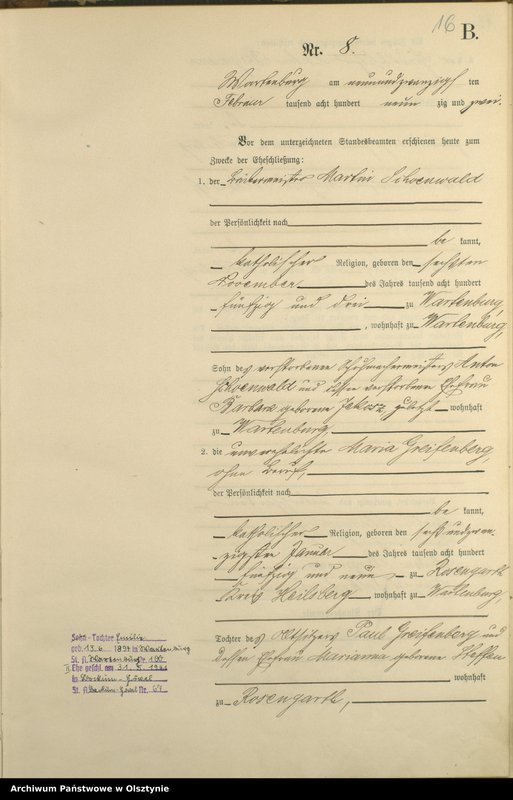 16 B.
Nr. 8.
Wartenburg am neunundzwanzigsten
Februar tausend acht hundert neun zig und zwei.
Vor dem unterzeichneten Standesbeamten erschienen heute zum
Zwecke der Eheschließung:
1. der Martin Schoenwald
der Persönlichkeit nach
be kannt,
katholischer Religion, geboren den sechsten
November des Jahres tausend acht hundert
fünfzig und drei zu Wartenburg,
, wohnhaft zu Wartenburg,
Sohn des verstorbenen Schuhmachermeisters Anton
Schoenwald und dessen verstorbene Ehefrau
Barbara geborene zuletzt wohnhaft
zu Wartenburg,
2. die unverehelichte Maria Greifenberg,
ohne Beruf,
der Persönlichkeit nach
be kannt,
katholischer Religion, geboren den sechsundzwan-
zigsten Januar des Jahres tausend acht hundert
fünfzig und neun zu Rosengarth
Kreis Heilsberg, wohnhaft zu Wartenburg,
Tochter des Altsitzers Paul Greifenberg und
dessen Ehefrau Marianna geborene Steffen
wohnhaft
zu Rosengarth,
Sohn - Tochter Emilie
geb. 13.6. 1894 in Wartenburg
St. A. Wartenburg Nr. 100
II Ehe geschl. am 31. 5.
in Borkum-
St. A. Nr. 61
Archiwum Państwowe w Olsztynie